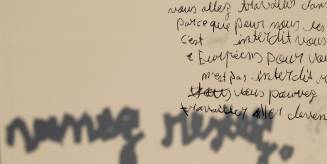 vous allez travailler dans
parce que pour nous les
c'est interdit vous
e Européens pour vou
n'est pas interdit
vous pouvez
travailler aller deven